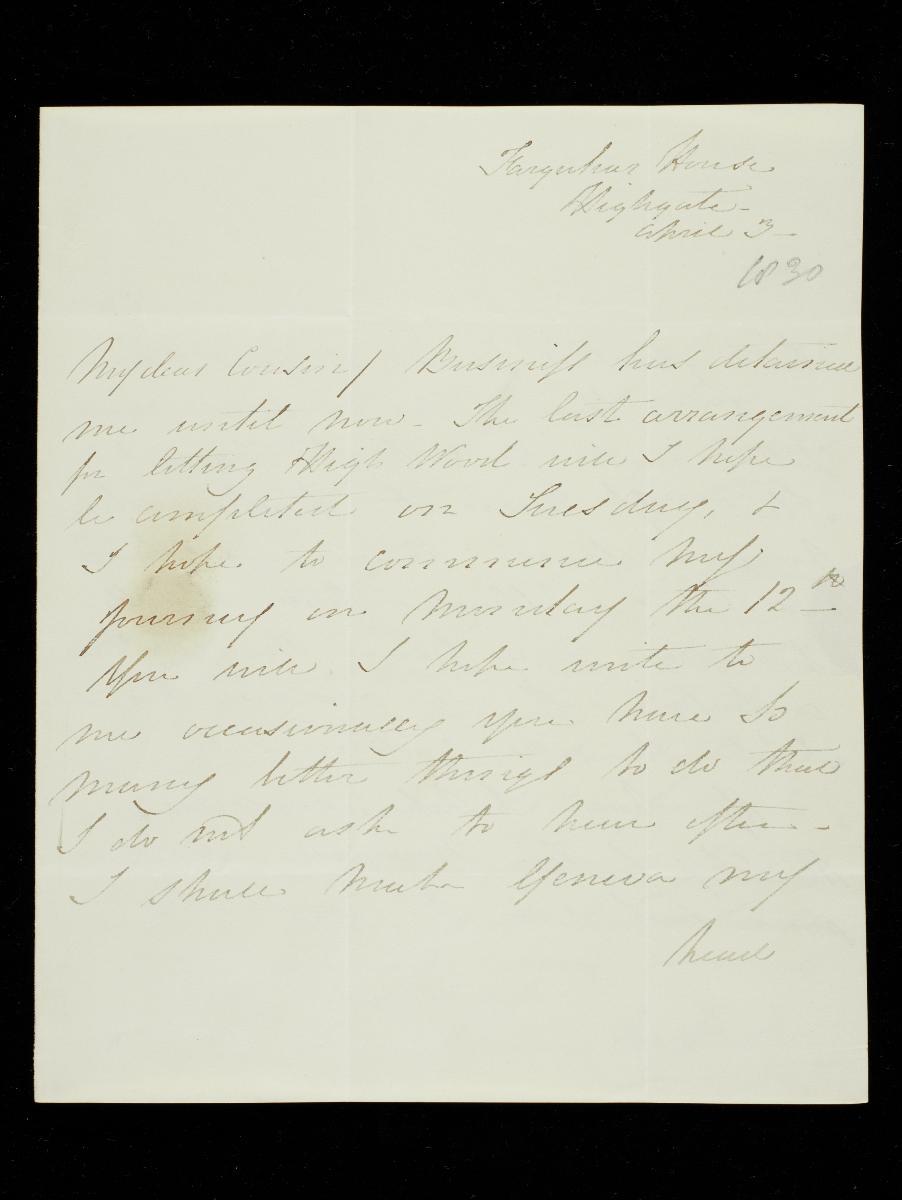 Farquhar House
Highgate -
April 3 -
1830
My dear Cousin / Business has detained
me until now - The last arrangement
for letting High Wood will I hope
be completed on Tuesday, &
I hope to commence my
journey on Monday the 12th
You will I hope write to
me occasionally you have so
many better things to do that
I do not ask to hear often -
I shall make Geneva my
head